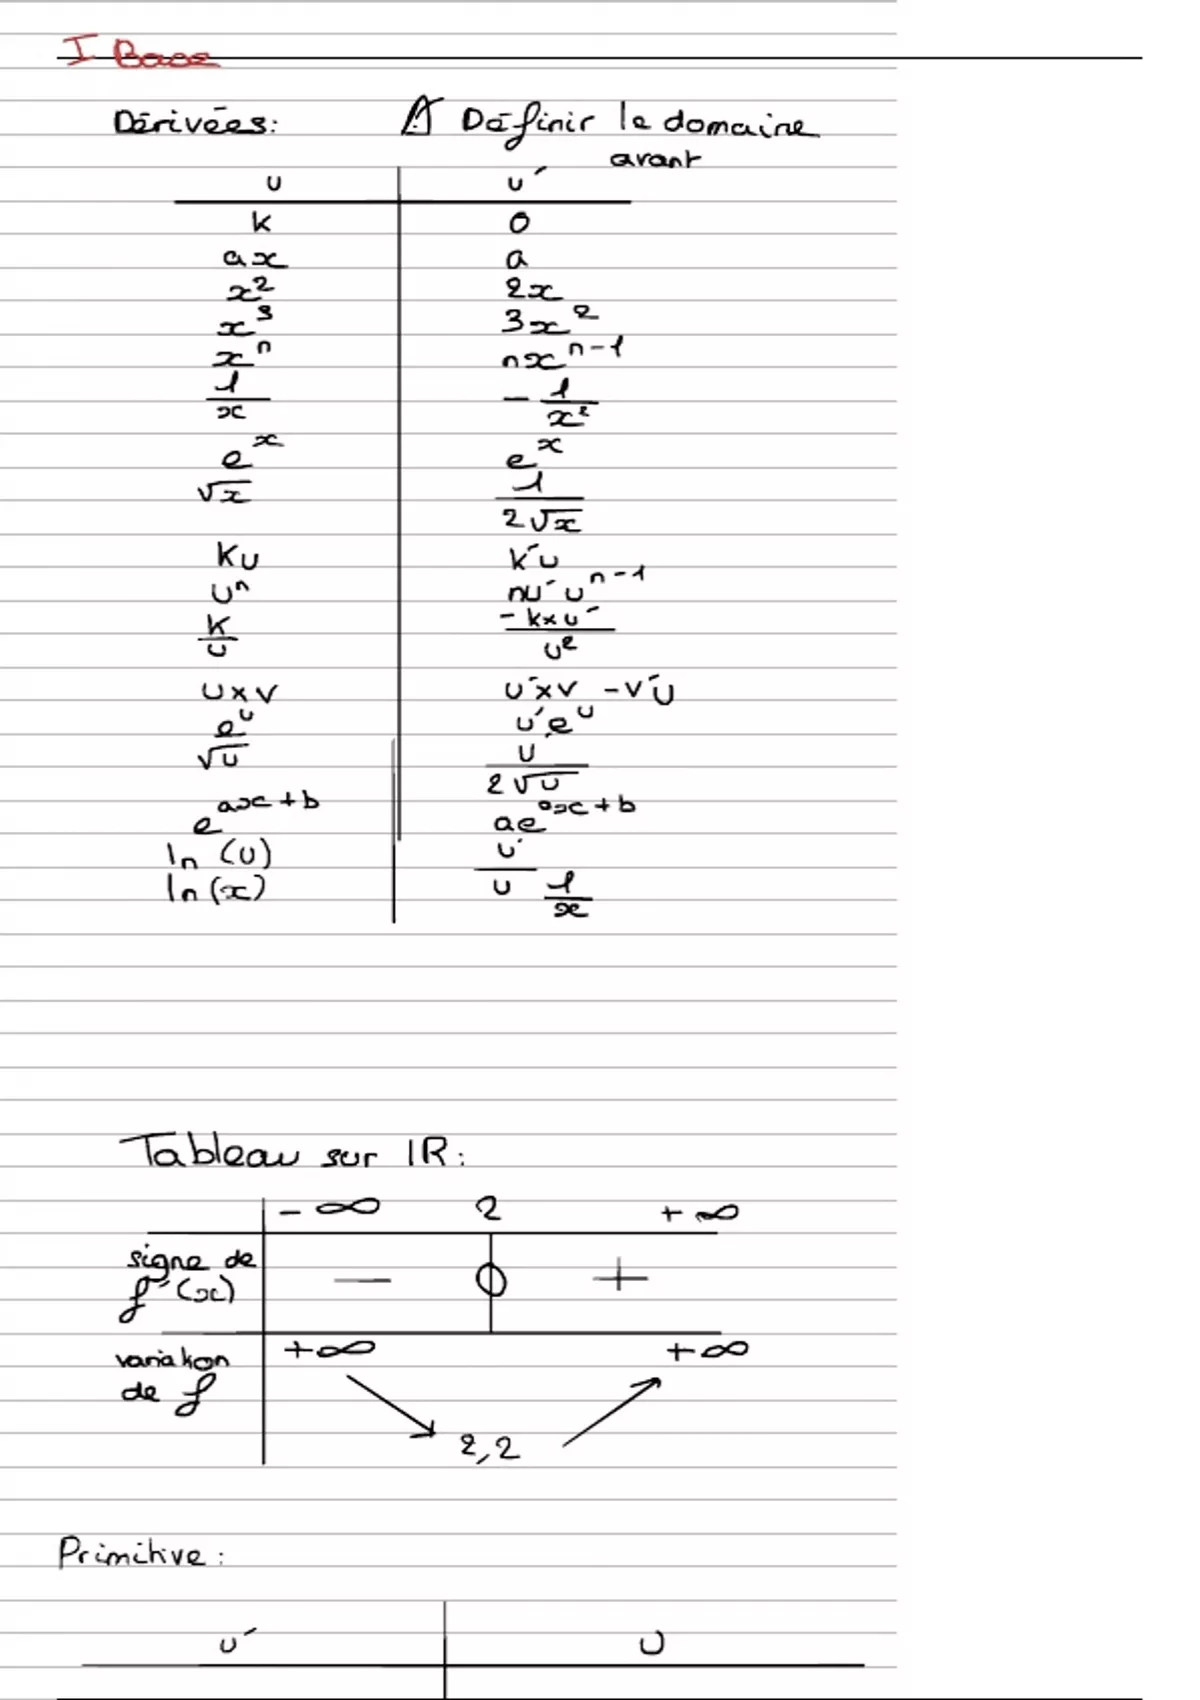 I Base
Dérivées: ⚠ Définir le domaine
avant
u u'
k 0
ax a
x² 2x
x³ 3x²
xⁿ nxⁿ⁻¹
1/x - 1/x²
eˣ eˣ
√x 1/(2√x)
ku k'u
uⁿ nu'uⁿ⁻¹
k/u -k×u'/u²
u×v u'×v -v'u
e^u u'e^u
√u u'/(2√u)
e^(ax+b) ae^(ax+b)
ln (u) u'/u
ln(x) 1/x
Tableau sur IR:
-∞ 2 +∞
signe de
f'(x) − 0 +
variation +∞ +∞
de f
2,2
Primitive:
u' U